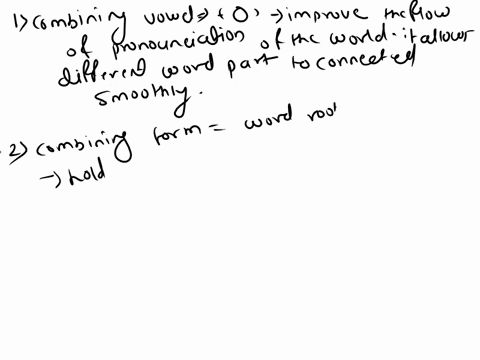 1) combining vowel => ‘O’ → improve the flow
of pronounciation of the world. it allows
different word part to connected
smoothly.
2) combining form = word root
→ hold